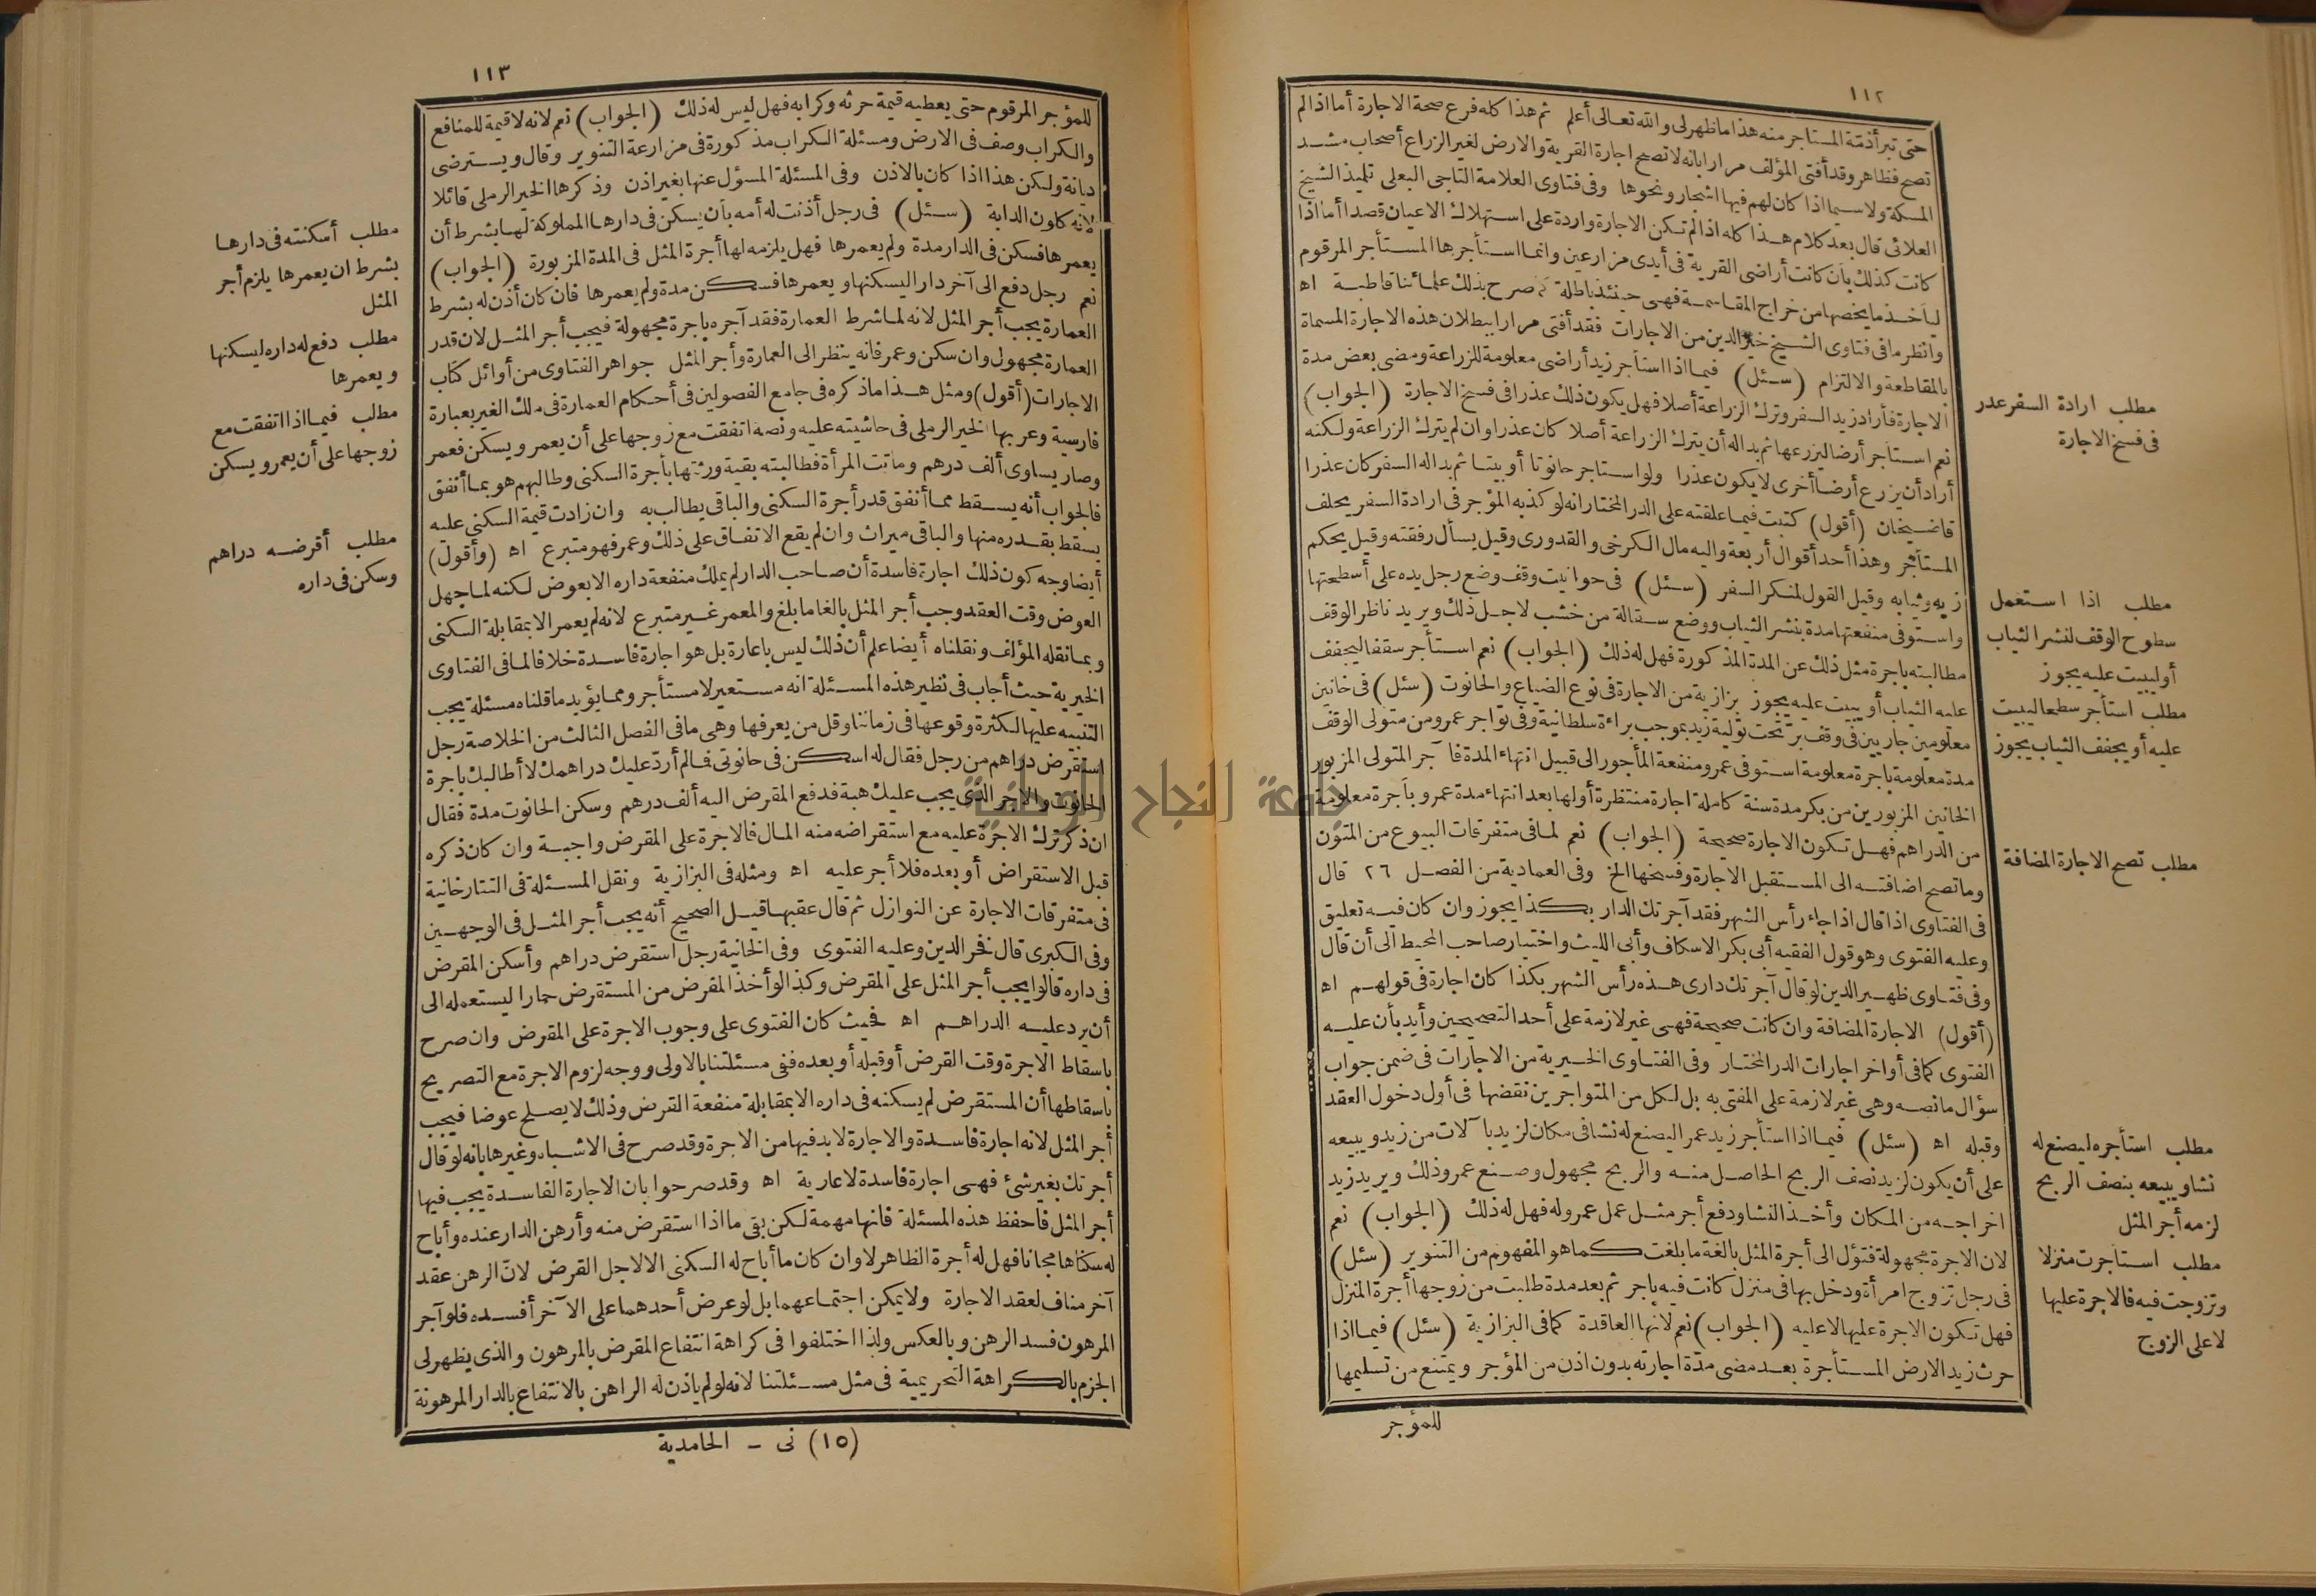 ١١٢
حتى تبرأ ذمة المستأجر منه هذا ما ظهر لى والله تعالى أعلم ثم هذا كله فرع صحة الاجارة أما اذا لم
تصح فظاهر وقد أفتى المؤلف مرارا بانه لا تصح اجارة القرية والارض لغير الزراع أصحاب مشد
المسكة ولاسيما اذا كان لهم فيها اشجار ونحوها وفى فتاوى العلامة التاجى البعلى تلميذ الشيخ
العلائى قال بعد كلام هذا كله اذا لم تكن الاجارة واردة على استهلاك الاعيان قصدا أما اذا
كانت كذلك بأن كانت أراضى القرية فى أيدى مزارعين وانما استأجرها المستأجر المرقوم
ليأخذ ما يخصها من خراج المقاسمة فهى حينئذ باطلة كما صرح بذلك علمائنا قاطبة اه
وانظر ما فى فتاوى الشيخ خير الدين من الاجارات فقد أفتى مرارا ببطلان هذه الاجارة المسماة
بالمقاطعة والالتزام (سئل) فيما اذا استأجر زيد أراضى معلومة للزراعة ومضى بعض مدة
الاجارة فأراد زيد السفر وترك الزراعة أصلا فهل يكون ذلك عذرا فى فسخ الاجارة (الجواب)
نعم استأجر أرضا ليزرعها ثم بدا له أن يترك الزراعة أصلا كان عذرا وان لم يترك الزراعة ولكنه
أراد أن يزرع أرضا أخرى لا يكون عذرا ولو استأجر حانوتا أو بيتا ثم بدا له السفر كان عذرا
قاضيخان (أقول) كتبت فيما علقته على الدر المختار انه لو كذبه المؤجر فى ارادة السفر يحلف
المستأجر وهذا أحد أقوال أربعة واليه مال الكرخى والقدورى وقيل يسأل رفقته وقيل يحكم
زيه وثيابه وقيل القول لمنكر السفر (سئل) فى حوانيت وقف وضع رجل يده على أسطحتها
واستوفى منفعتها مدة بنشر الثياب ووضع سقالة من خشب لاجل ذلك ويريد ناظر الوقف
مطالبته باجرة مثل ذلك عن المدة المذكورة فهل له ذلك (الجواب) نعم استأجر سقفا ليجفف
عليه الثياب أو يبيت عليه يجوز بزازية من الاجارة فى نوع الضياع والحانوت (سئل) فى خانين
معلومين جاريين فى وقف بر تحت تولية زيد بموجب براءة سلطانية وفى تواجر عمرو من متولى الوقف
مدة معلومة باجرة معلومة استوفى عمرو منفعة المأجور الى قبيل انتهاء المدة فآجر المتولى المزبور
الخانين المزبورين من بكر مدة سنة كاملة اجارة منتظرة أولها بعد انتهاء مدة عمرو بأجرة معلومة
من الدراهم فهل تكون الاجارة صحيحة (الجواب) نعم لما فى متفرقات البيوع من المتون
وما تصح اضافته الى المستقبل الاجارة وفسخها الخ وفى العمادية من الفصل ٢٦ قال
فى الفتاوى اذا قال اذا جاء رأس الشهر فقد آجرتك الدار بكذا يجوز وان كان فيه تعليق
وعليه الفتوى وهو قول الفقيه أبى بكر الاسكاف وأبى الليث واختيار صاحب المحيط الى أن قال
وفى فتاوى ظهير الدين لو قال آجرتك دارى هذه رأس الشهر بكذا كان اجارة فى قولهم اه
(أقول) الاجارة المضافة وان كانت صحيحة فهى غير لازمة على أحد التصحيحين وأيد بأن عليه
الفتوى كما فى أواخر اجارات الدر المختار وفى الفتاوى الخيرية من الاجارات فى ضمن جواب
سؤال ما نصه وهى غير لازمة على المفتى به بل لكل من المتواجرين نقضها فى أول دخول العقد
وقبله اه (سئل) فيما اذا استأجر زيد عمرا ليصنع له نشا فى مكان لزيد بآلات من زيد ويبيعه
على أن يكون لزيد نصف الربح الحاصل منه والربح مجهول وصنع عمرو ذلك ويريد زيد
اخراجه من المكان وأخذ النشا ودفع أجر مثل عمل عمرو له فهل له ذلك (الجواب) نعم
لان الاجرة مجهولة فتؤل الى أجرة المثل بالغة ما بلغت كما هو المفهوم من التنوير (سئل)
فى رجل تزوج امرأة ودخل بها فى منزل كانت فيه باجر ثم بعد مدة طلبت من زوجها أجرة المنزل
فهل تكون الاجرة عليها لا عليه (الجواب) نعم لانها العاقدة كما فى البزازية (سئل) فيما اذا
حرث زيد الارض المستأجرة بعد مضى مدة اجارته بدون اذن من المؤجر ويمتنع من تسليمها
للمؤجر
مطلب ارادة السفر عذر
فى فسخ الاجارة
مطلب اذا استعمل
سطوح الوقف لنشر الثياب
أو ليبيت عليه يجوز
مطلب استأجر سطحا ليبيت
عليه أو يجفف الثياب يجوز
مطلب تصح الاجارة المضافة
مطلب استأجره ليصنع له
نشا ويبيعه بنصف الربح
لزمه أجر المثل
مطلب استأجرت منزلا
وتزوجت فيه فالاجرة عليها
لا على الزوج
١١٣
للمؤجر المرقوم حتى يعطيه قيمة حرثه وكرابه فهل ليس له ذلك (الجواب) نعم لانه لا قيمة للمنافع
والكراب وصف فى الارض ومسئلة الكراب مذكورة فى مزارعة التنوير وقال ويسترضى
ديانة ولكن هذا اذا كان بالاذن وفى المسئلة المسؤل عنها بغير اذن وذكرها الخير الرملى قائلا
لانه كاون الدابة (سئل) فى رجل أذنت له أمه بأن يسكن فى دارها المملوكة لها بشرط أن
يعمرها فسكن فى الدار مدة ولم يعمرها فهل يلزمه لها أجرة المثل فى المدة المزبورة (الجواب)
نعم رجل دفع الى آخر دارا ليسكنها ويعمرها فسكن مدة ولم يعمرها فان كان أذن له بشرط
العمارة يجب أجر المثل لانه لما شرط العمارة فقد آجره باجرة مجهولة فيجب أجر المثل لان قدر
العمارة مجهول وان سكن وعمر فانه ينظر الى العمارة وأجر المثل جواهر الفتاوى من أوائل كتاب
الاجارات (أقول) ومثل هذا ما ذكره فى جامع الفصولين فى أحكام العمارة فى ملك الغير بعبارة
فارسية وعربها الخير الرملى فى حاشيته عليه ونصه اتفقت مع زوجها على أن يعمر ويسكن فعمر
وصار يساوى ألف درهم وماتت المرأة فطالبته بقية ورثتها بأجرة السكنى وطالبهم هو بما أنفق
فالجواب أنه يسقط مما أنفق قدر أجرة السكنى والباقى يطالب به وان زادت قيمة السكنى عليه
يسقط بقدره منها والباقى ميراث وان لم يقع الاتفاق على ذلك وعمر فهو متبرع اه (وأقول)
أيضا وجه كون ذلك اجارة فاسدة أن صاحب الدار لم يملك منفعة داره الا بعوض لكنه لما جهل
العوض وقت العقد وجب أجر المثل بالغا ما بلغ والمعمر غير متبرع لانه لم يعمر الا بمقابلة السكنى
وبما نقله المؤلف ونقلناه أيضا علم أن ذلك ليس باعارة بل هو اجارة فاسدة خلافا لما فى الفتاوى
الخيرية حيث أجاب فى نظير هذه المسئلة انه مستعير لا مستأجر ومما يؤيد ما قلناه مسئلة يجب
التنبيه عليها لكثرة وقوعها فى زماننا وقل من يعرفها وهى ما فى الفصل الثالث من الخلاصة رجل
استقرض دراهم من رجل فقال له اسكن فى حانوتى فما لم أرد عليك دراهمك لا أطالبك باجرة
الحانوت والاجر الذى يجب عليك هبة فدفع المقرض اليه ألف درهم وسكن الحانوت مدة فقال
ان ذكر ترك الاجرة عليه مع استقراضه منه المال فالاجرة على المقرض واجبة وان كان ذكره
قبل الاستقراض أو بعده فلا أجر عليه اه ومثله فى البزازية ونقل المسئلة فى التتارخانية
فى متفرقات الاجارة عن النوازل ثم قال عقبها قيل الصحيح أنه يجب أجر المثل فى الوجهين
وفى الكبرى قال فخر الدين وعليه الفتوى وفى الخانية رجل استقرض دراهم وأسكن المقرض
فى داره قالوا يجب أجر المثل على المقرض وكذا لو أخذ المقرض من المستقرض حمارا ليستعمله الى
أن يرد عليه الدراهم اه فحيث كان الفتوى على وجوب الاجرة على المقرض وان صرح
باسقاط الاجرة وقت القرض أو قبله أو بعده ففى مسئلتنا بالاولى ووجه لزوم الاجرة مع التصريح
باسقاطها أن المستقرض لم يسكنه فى داره الا بمقابلة منفعة القرض وذلك لا يصلح عوضا فيجب
أجر المثل لانه اجارة فاسدة والاجارة لا بد فيها من الاجرة وقد صرح فى الاشباه وغيرها بانه لو قال
أجرتك بغير شئ فهى اجارة فاسدة لا عارية اه وقد صرحوا بان الاجارة الفاسدة يجب فيها
أجر المثل فاحفظ هذه المسئلة فانها مهمة لكن بقى ما اذا استقرض منه وأرهن الدار عنده وأباح
له سكناها مجانا فهل له أجرة الظاهر لا وان كان ما أباح له السكنى الا لاجل القرض لان الرهن عقد
آخر مناف لعقد الاجارة ولا يمكن اجتماعهما بل لو عرض أحدهما على الآخر أفسده فلو آجر
المرهون فسد الرهن وبالعكس ولذا اختلفوا فى كراهة انتفاع المقرض بالمرهون والذى يظهر لى
الجزم بالكراهة التحريمية فى مثل مسئلتنا لانه لو لم ياذن له الراهن بالانتفاع بالدار المرهونة
(١٥) نى - الحامدية
مطلب أسكنته فى دارها
بشرط ان يعمرها يلزم أجر
المثل
مطلب دفع له داره ليسكنها
ويعمرها
مطلب فيما اذا اتفقت مع
زوجها على أن يعمر ويسكن
مطلب أقرضه دراهم
وسكن فى داره
جامعة النجاح الوطنية